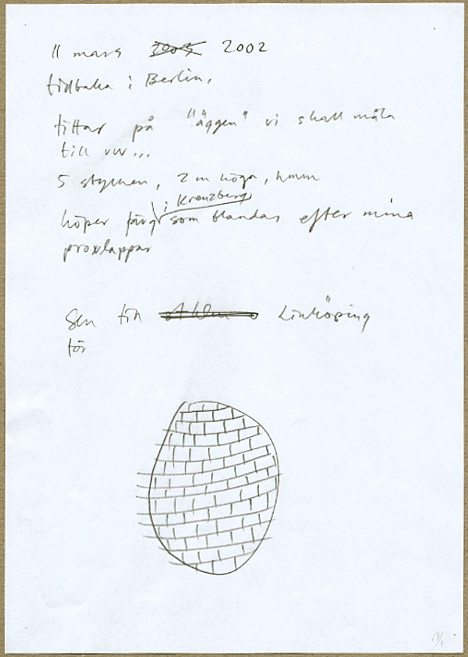 11 mars 2003 2002
tillbaka i Berlin,
tittar på "äggen" vi skall måla
till vår...
5 stycken, 2 m höga, hmm
i Kreuzberg
köper färg som blandas efter mina
provlappar
Sen till Linköping
för